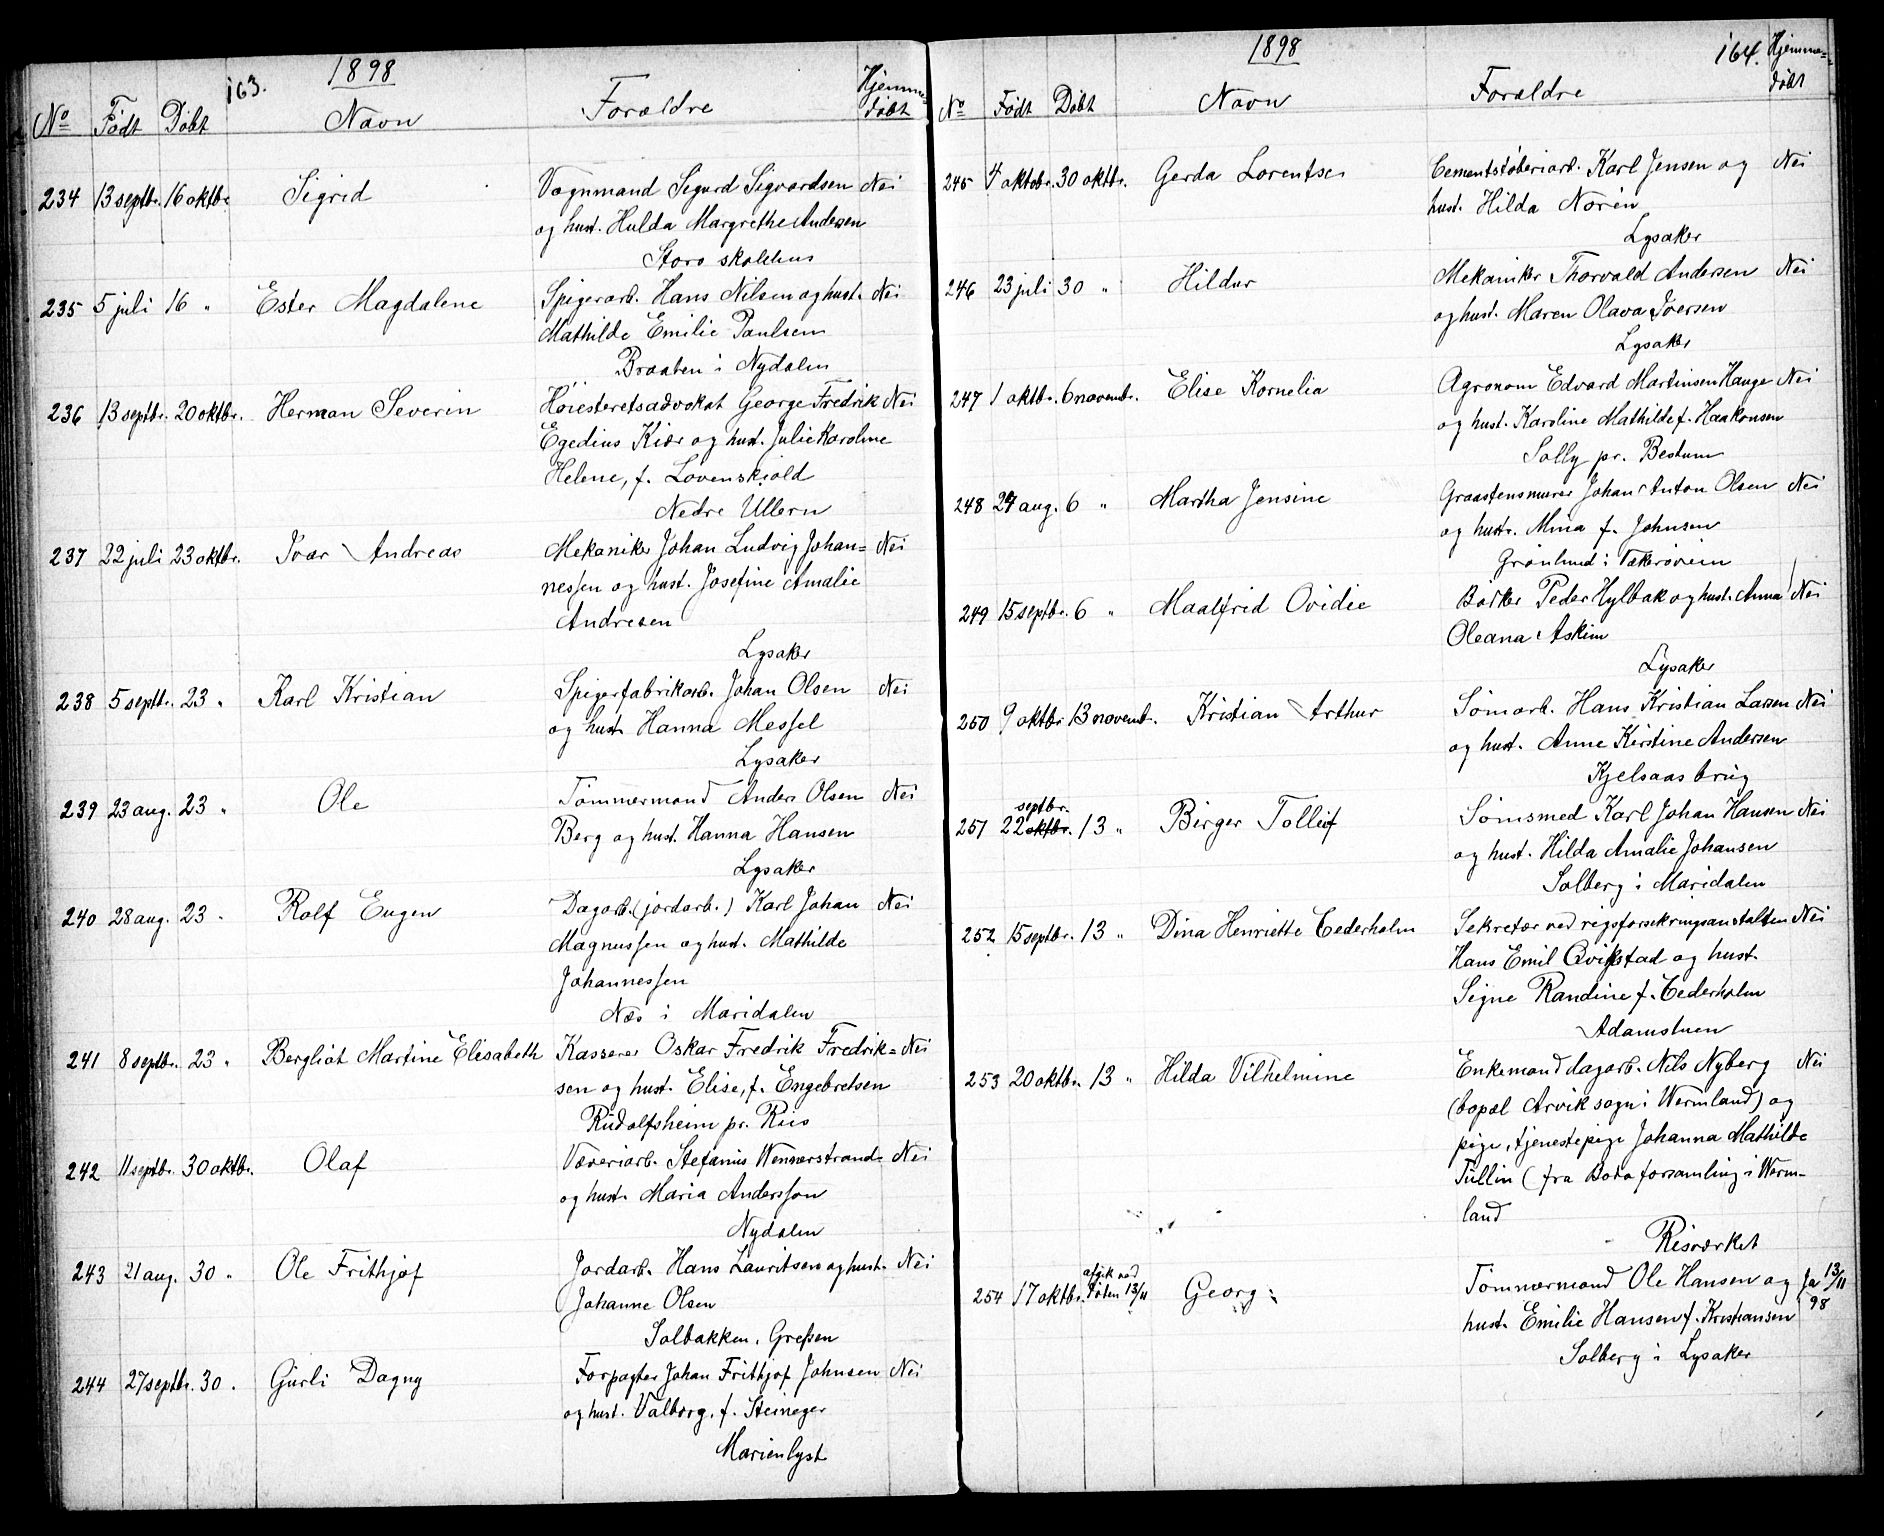 163.
1898
No Født Døbt Navn Forældre Hjemme-
døbt
234 13 septbr. 16 oktbr. Sigrid Vognmand Sigurd Sigvardsen Nei
og hust. Hulda Margrethe Andersen
Storo skolehus
235 5 juli 16 " Ester Magdalene Spigerarb. Hans Nilsen og hust. Nei
Mathilde Emilie Paulsen
Braaten i Nydalen
236 13 septbr. 20 oktbr. Herman Severin Høiesteretsadvokat George Fredrik Nei
Egedius Kiær og hust. Julie Karoline
Helene, f. Løvenskiold
Nedre Ullern
237 22 juli 23 oktbr. Ivar Andreas Mekaniker Johan Ludvig Johan= Nei
nessen og hust. Josefine Amalie
Andresen
Lysaker
238 5 septbr. 23 " Karl Kristian Spigerfabrikarb. Johan Olsen Nei
og hust. Hanna Messel
Lysaker
239 23 aug. 23 " Ole Tømmermand Anders Olsen Nei
Berg og hust. Hanna Hansen
Lysaker
240 28 aug. 23 " Rolf Eugen Dagarb. (jordarb.) Karl Johan Nei
Magnussen og hust. Mathilde
Johannessen
Næs i Maridalen
241 8 septbr. 23 " Bergliot Martine Elisabeth Kasserer Oskar Fredrik Fredrik= Nei
sen og hust. Elise, f. Engebretsen
Rudolfsheim pr. Riis
242 11 septbr. 30 oktbr. Olaf Væveriarb. Stefanus Wennerstrand Nei
og hust. Maria Andersson
Nydalen
243 21 aug. 30 " Ole Frithjof Jordarb. Hans Lauritsen og hust. Nei
Johanne Olsen
Solbakken, Grefsen
244 27 septbr. 30 " Gurli Dagny Forpagter Johan Frithjof Johnsen Nei
og hust. Valborg, f. Steineger
Marienlyst
1898
164.
No Født Døbt Navn Forældre Hjemme=
døbt
245 4 oktobr. 30 oktbr. Gerda Lorentse Cementstøberiarb. Karl Jensen og Nei
hust. Hilda Norén
Lysaker
246 23 juli 30 " Hildur Mekaniker Thorvald Andersen Nei
og hust. Maren Olava Iversen
Lysaker
247 1 oktbr. 6 novembr. Elise Kornelia Agronom Edvard Martinsen Hauge Nei
og hust. Karoline Mathilde f. Haakonsen
Solly pr. Bestum
248 24 aug. 6 " Martha Jensine Graastensmurer Johan Anton Olsen Nei
og hustr. Mina f. Johnsen
Grønlund i Vækerøveien
249 15 septbr. 6 " Maalfrid Ovidie Basker Peder Hylbak og hust. Anna Nei
Oleana Askim
Lysaker
250 9 oktbr 13 novembr. Kristian Arthur Sømarb. Hans Kristian Larsen Nei
og hust. Anne Kirstine Andersen
Kjelsaas brug
septbr.
251 22 oktbr. 13 " Birger Tollef Sømsmed Karl Johan Hansen Nei
og hust. Hilda Amalie Johansen
Solberg i Maridalen
252 15 septbr. 13 " Dina Henriette Cederholm Sekretær ved rigsforsikringsanstalten Nei
Hans Emil Qvikstad og hust.
Signe Randine f. Cederholm
Adamstuen
253 20 oktbr. 13 " Hilda Vilhelmine Enkemand dagarb. Nils Nyberg Nei
(bopæl Arvik sogn i Wermland) og
pige, tjenestepige Johanna Mathilde
Tullin (fra Boda forsamling i Werm-
land
Risværket
afgik ved
254 17 oktbr. døden 13/11 Georg Tømmermand Ole Hansen og Ja 13/11
hust. Emilie Hansen f. Kristiansen 98
Solberg i Lysaker